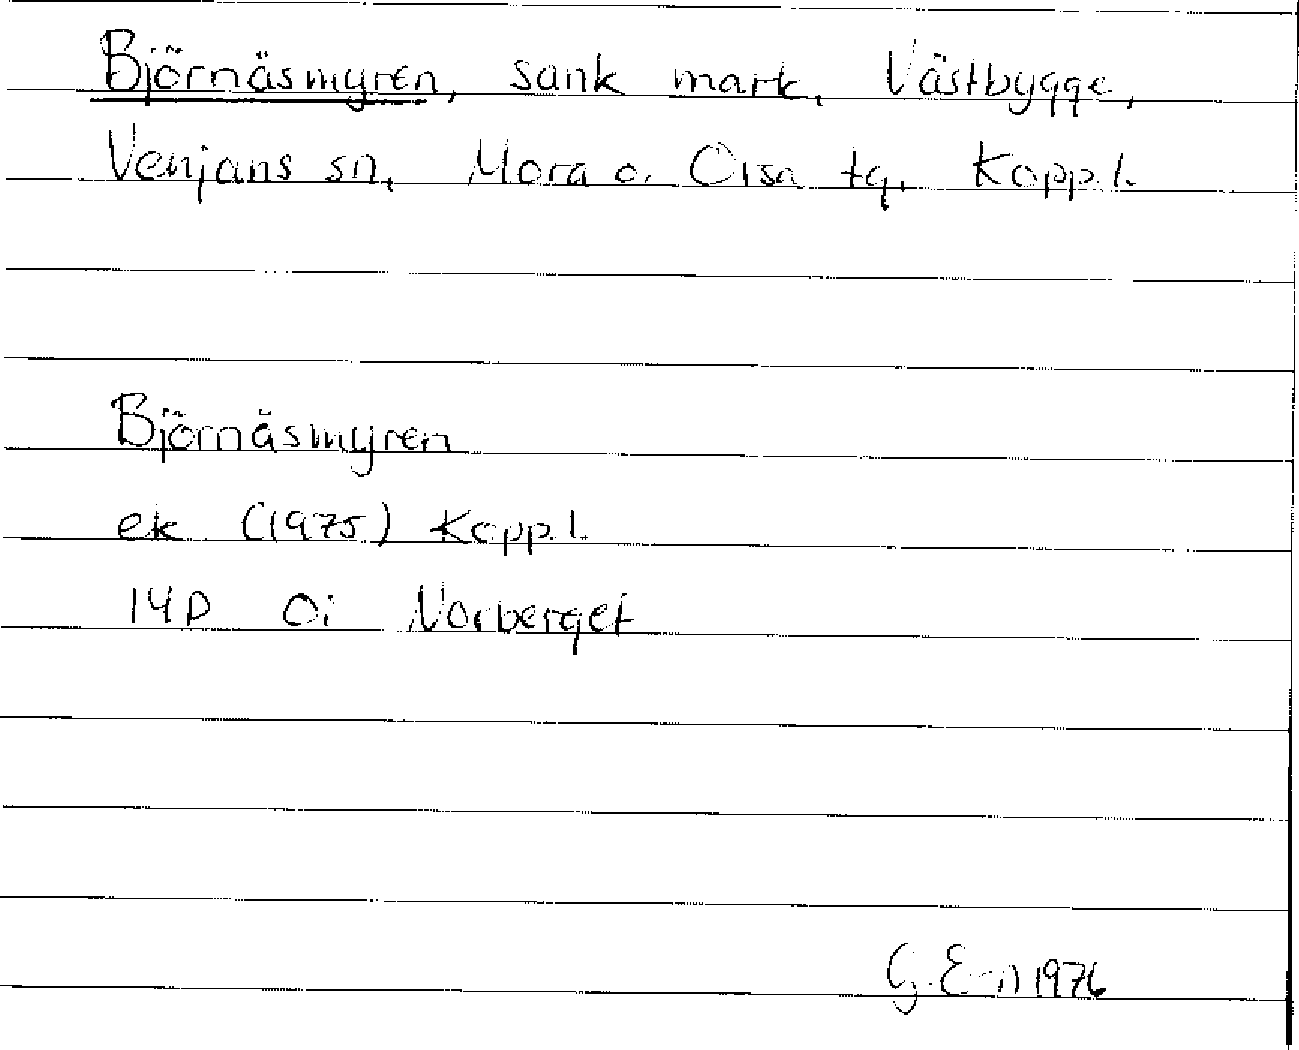 Björnäsmyren, sank mark, Västbygge,
Venjans sn, Mora o. Orsa tg, Kopp.l.
Björnäsmyren
ek (1975) Kopp.l.
14D 0i Norberget
G. E-n 1976